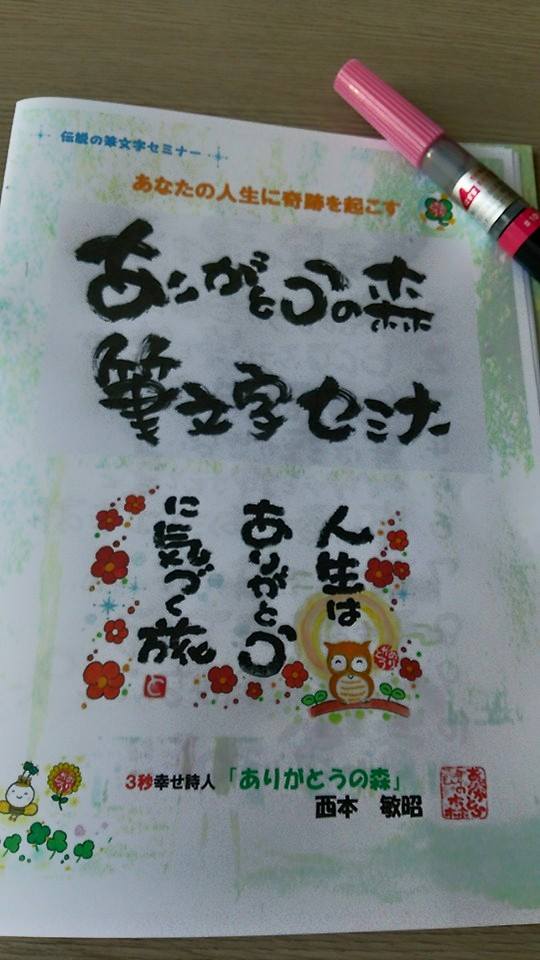 伝説の筆文字セミナー
あなたの人生に奇跡を起こす
ありがとうの森
筆文字セミナー
人生は
ありがとう
に気づく旅
3秒幸せ詩人「ありがとうの森」
西本 敏昭